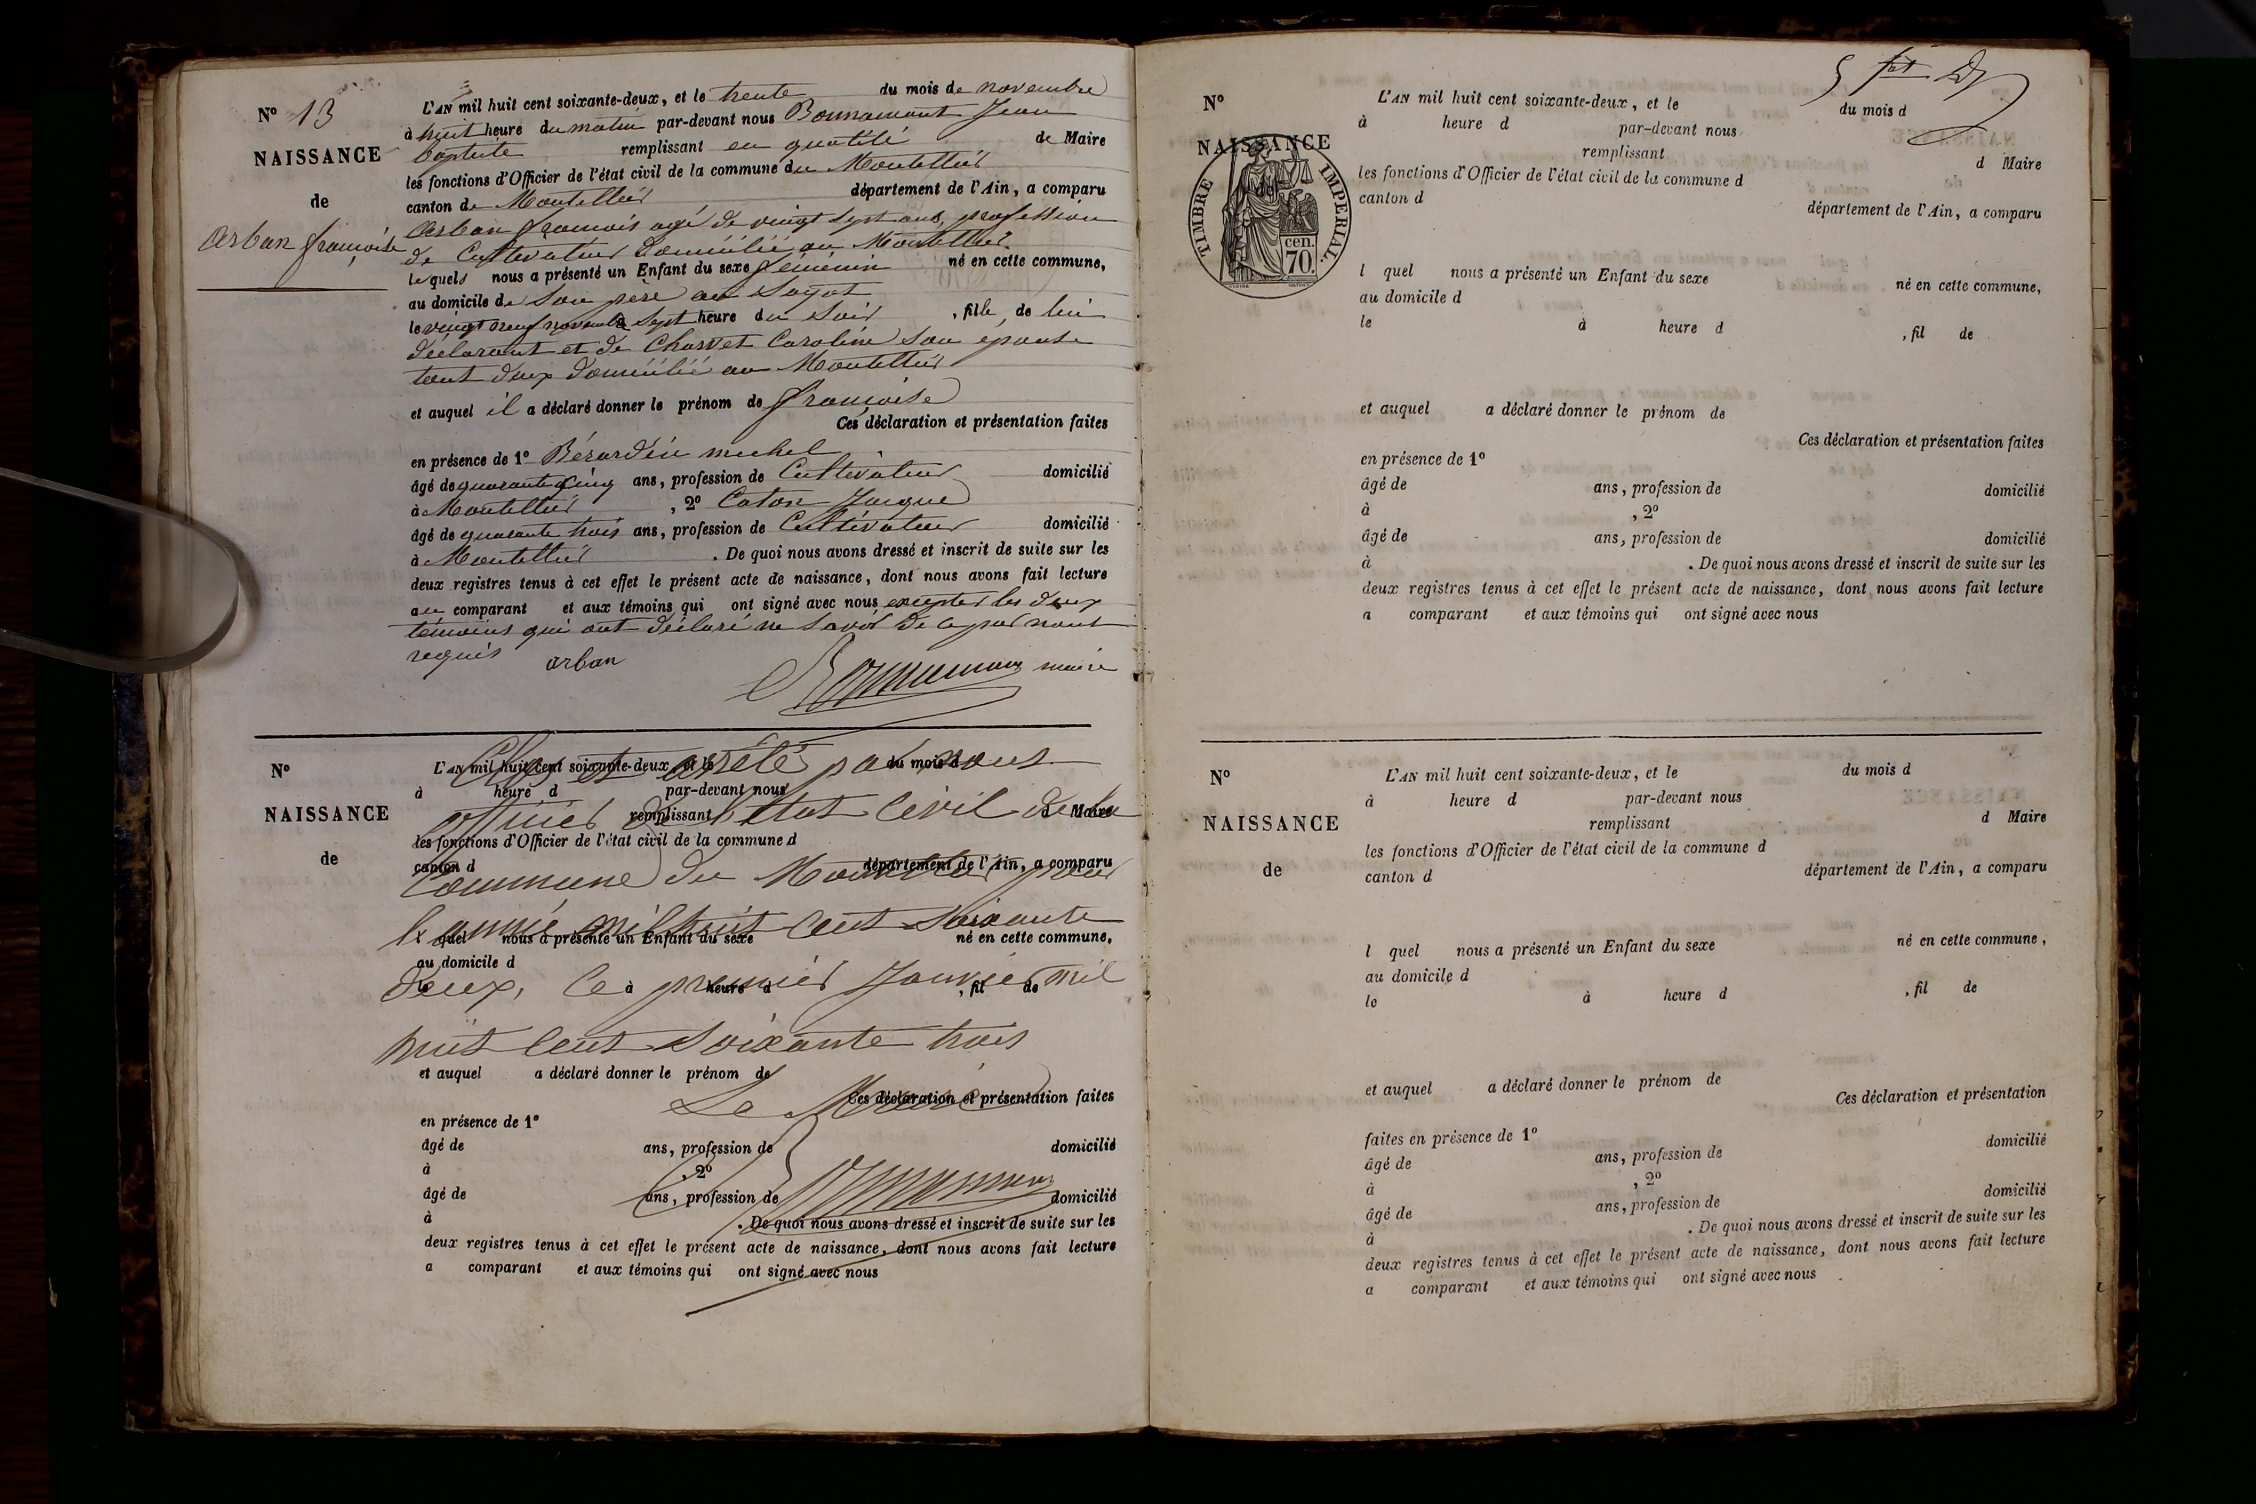 N° 13
NAISSANCE
de
Arban françoise
L'AN mil huit cent soixante-deux, et le trente du mois de novembre
à huit heure du matin par-devant nous Bonnamant Jean
baptiste remplissant en qualité de Maire
les fonctions d'Officier de l'état civil de la commune du Montellier
canton de Montellier département de l'Ain, a comparu
Arban françois agé de vingt sept ans, profession
de Cultivateur domicilié au Montellier
lequels nous a présenté un Enfant du sexe féminin né en cette commune,
au domicile de son père au
le vingt neuf novembre à sept heure du soir , fille de lui
déclarant et de Charvet Caroline son epouse
tout deux domicilié au Montellier
et auquel il a déclaré donner le prénom de françoise
Ces déclaration et présentation faites
en présence de 1° Bérardin michel
âgé de quarante cinq ans, profession de Cultivateur domicilié
à Montellier , 2° Caton Jacque
âgé de quarante trois ans, profession de Cultivateur domicilié
à Montellier . De quoi nous avons dressé et inscrit de suite sur les
deux registres tenus à cet effet le présent acte de naissance, dont nous avons fait lecture
au comparant et aux témoins qui ont signé avec nous excepter les deux
témoins qui ont déclaré ne savoir de ce par nous
requis arban
Bonnamant maire
N°
NAISSANCE
de
L'AN mil huit cent soixante-deux, et le du mois d
Clos et arrêté par nous
à heure d par-devant nous
remplissant d Maire
officier de l'état civil de la
les fonctions d'Officier de l'état civil de la commune d
canton d département de l'Ain, a comparu
Commune du Montellier pour
l'année mil huit cent soixante
l quel nous a présenté un Enfant du sexe né en cette commune,
au domicile d
deux, le premier Janvier mil
le à heure d , fil de
huit cent soixante trois
et auquel a déclaré donner le prénom de
Le Maire
Ces déclaration et présentation faites
en présence de 1°
âgé de ans, profession de domicilié
à , 2°
Bonnamant
âgé de ans, profession de domicilié
à . De quoi nous avons dressé et inscrit de suite sur les
deux registres tenus à cet effet le présent acte de naissance, dont nous avons fait lecture
a comparant et aux témoins qui ont signé avec nous
N°
NAISSANCE
TIMBRE IMPERIAL.
cen.
70.
L'AN mil huit cent soixante-deux, et le du mois d
à heure d par-devant nous
remplissant d Maire
les fonctions d'Officier de l'état civil de la commune d
canton d département de l'Ain, a comparu
l quel nous a présenté un Enfant du sexe né en cette commune,
au domicile d
le à heure d , fil de
et auquel a déclaré donner le prénom de
Ces déclaration et présentation faites
en présence de 1°
âgé de ans, profession de domicilié
à , 2°
âgé de ans, profession de domicilié
à . De quoi nous avons dressé et inscrit de suite sur les
deux registres tenus à cet effet le présent acte de naissance, dont nous avons fait lecture
a comparant et aux témoins qui ont signé avec nous
N°
NAISSANCE
de
L'AN mil huit cent soixante-deux, et le du mois d
à heure d par-devant nous
remplissant d Maire
les fonctions d'Officier de l'état civil de la commune d
canton d département de l'Ain, a comparu
l quel nous a présenté un Enfant du sexe né en cette commune,
au domicile d
le à heure d , fil de
et auquel a déclaré donner le prénom de
Ces déclaration et présentation
faites en présence de 1°
âgé de ans, profession de domicilié
à , 2°
âgé de ans, profession de domicilié
à . De quoi nous avons dressé et inscrit de suite sur les
deux registres tenus à cet effet le présent acte de naissance, dont nous avons fait lecture
a comparant et aux témoins qui ont signé avec nous